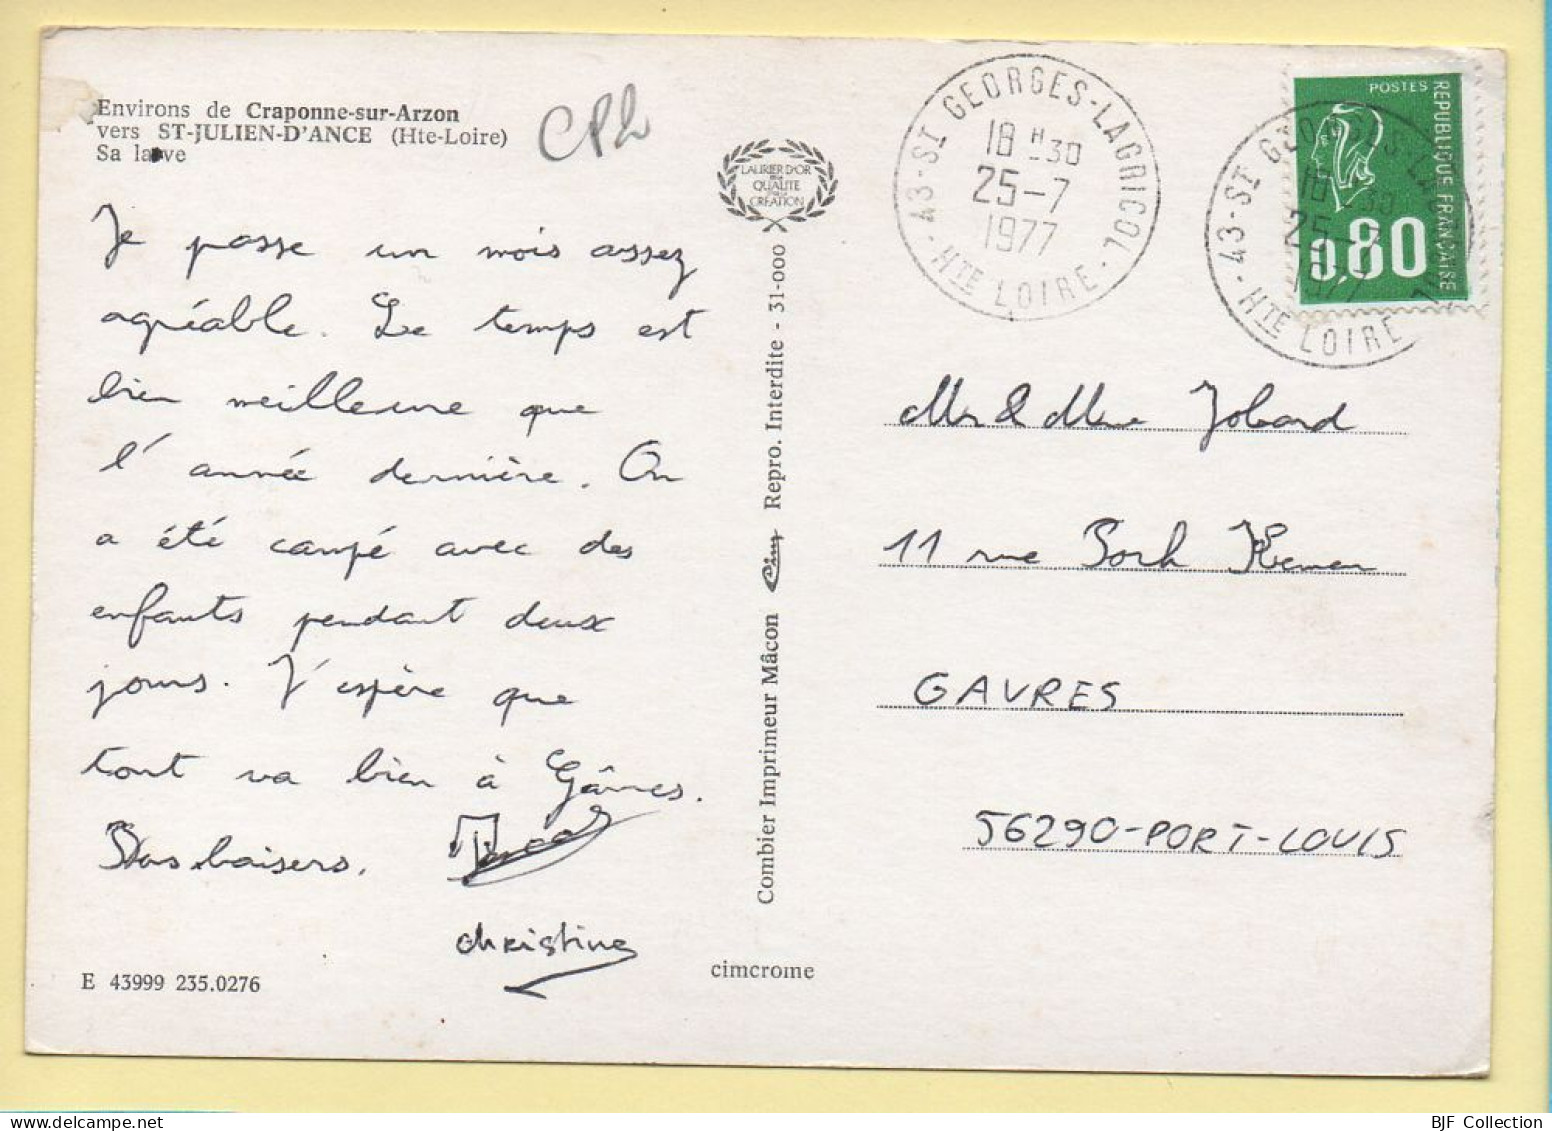 Environs de Craponne-sur-Arzon
vers ST-JULIEN-D'ANCE (Hte-Loire)
Sa lave
CPL
Je passe un mois assez
agréable. Le temps est
bien meilleure que
l'année dernière. On
a été campé avec des
enfants pendant deux
jours. J'espère que
tout va bien à Gâvres.
Bons baisers.
christine
E 43999 235.0276
LAURIER D'OR
DE LA
QUALITE
CREATION
Combier Imprimeur Mâcon Cim Repro. Interdite - 31-000
cimcrome
43-ST GEORGES-LAGRICOL
18 H 30
25-7
1977
HTE LOIRE
POSTES
REPUBLIQUE FRANÇAISE
0,80
43-ST GEORGES-LAGRICOL
18 H 30
25-7
1977
HTE LOIRE
Mr & Mme Jobard
11 rue Porh Kerner
GAVRES
56290-PORT-LOUIS
BJF Collection